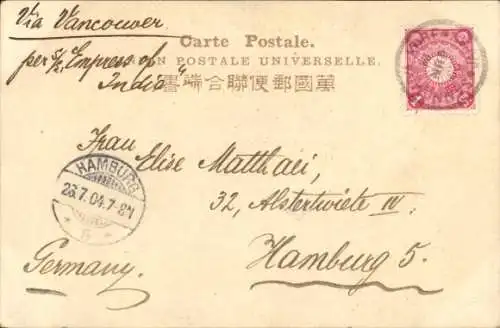 Via Vancouver
per S/S "Empress of
India"
Carte Postale.
UNION POSTALE UNIVERSELLE.
萬國郵便聯合端書
Frau
Elise Matthaei,
32, Alstertwiete IV.
Hamburg 5.
Germany.
HAMBURG
26.7.04.7-8N